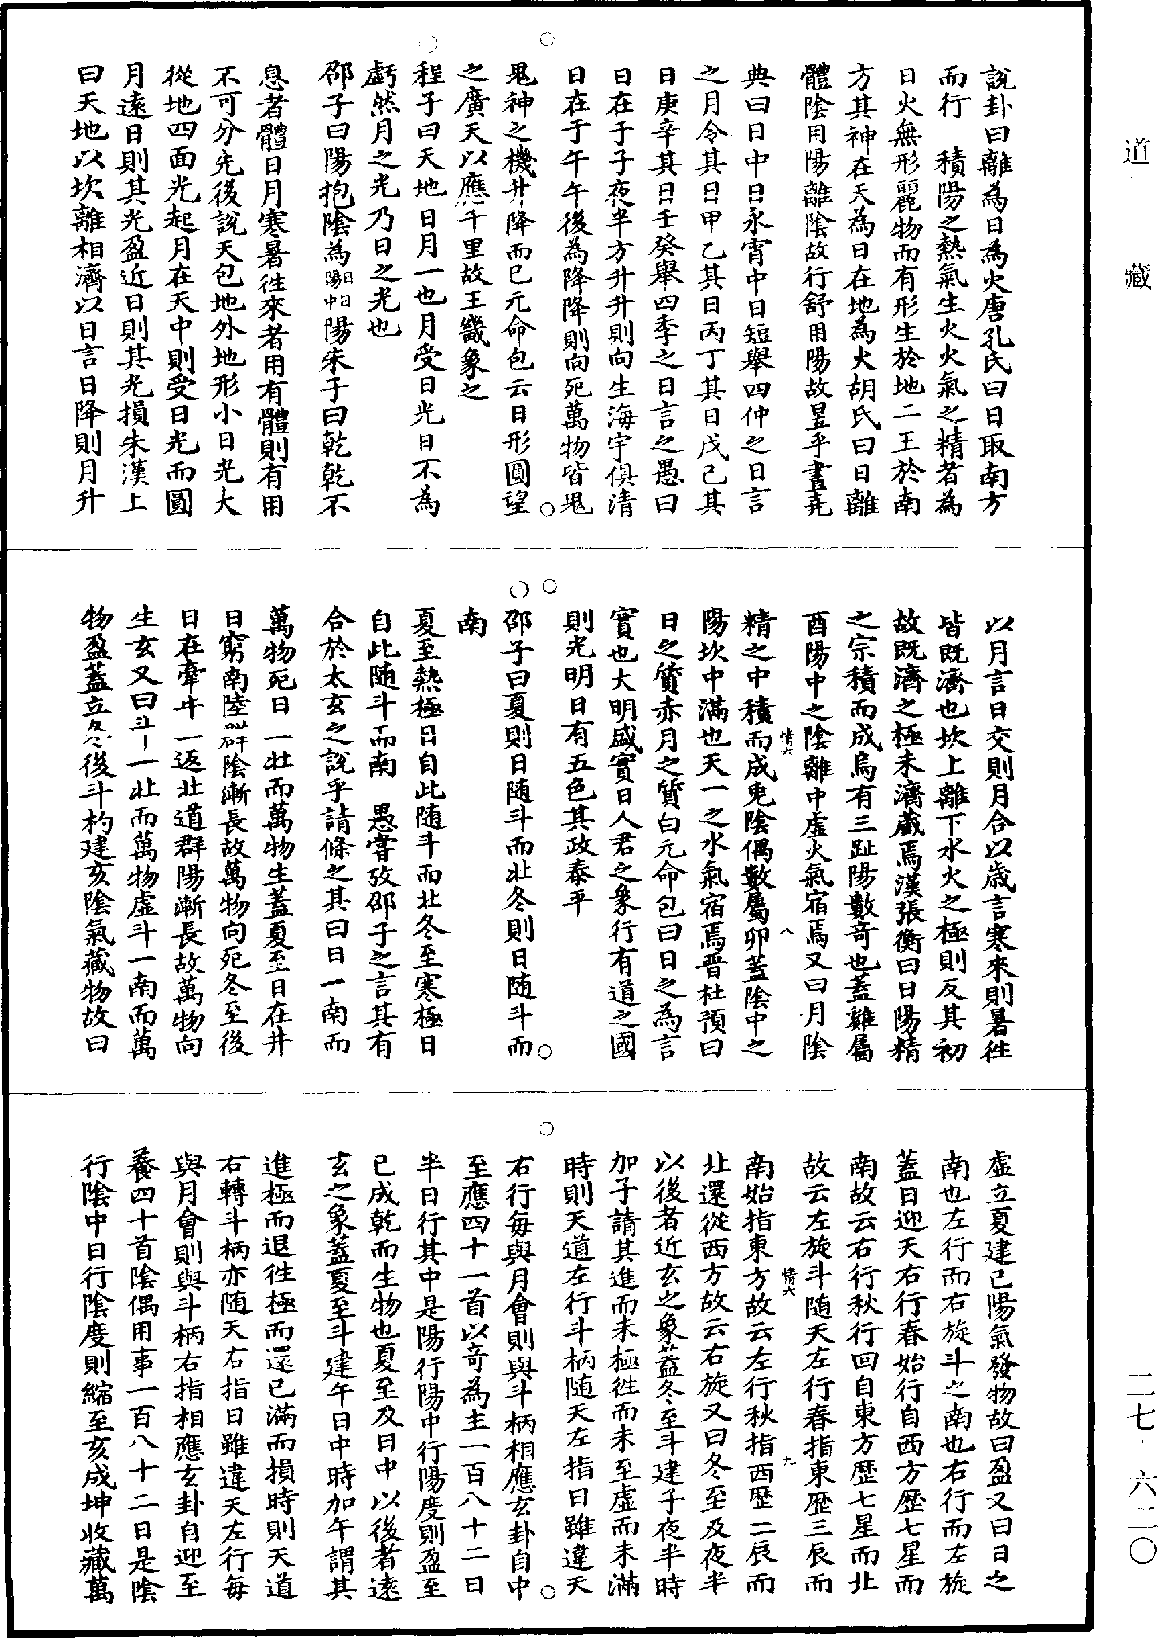 道藏
說卦曰離為日為火唐孔氏曰日取南方
而行　積陽之熱氣生火火氣之精者為
日火無形麗物而有形生於地二王於南
方其神在天為日在地為火胡氏曰日離
體陰用陽離陰故行舒用陽故昱乎晝堯
典曰日中日永宵中日短舉四仲之日言
之月令其日甲乙其日丙丁其日戊己其
日庚辛其日壬癸舉四季之日言之愚曰
日在于子夜半方升升則向生海宇俱清
日在于午午後為降降則向死萬物皆鬼
鬼神之機升降而已元命包云日形圓望
之廣天以應千里故王畿象之
程子曰天地日月一也月受日光日不為
虧然月之光乃日之光也
邵子曰陽抱陰為日日陽中陽朱子曰乾乾不
息者體日月寒暑往來者用有體則有用
不可分先後說天包地外地形小日光大
從地四面光起月在天中則受日光而圓
月遠日則其光盈近日則其光損朱漢上
曰天地以坎離相濟以日言日降則月升
以月言日交則月合以歲言寒來則暑往
皆既濟也坎上離下水火之極則反其初
故既濟之極未濟藏焉漢張衡曰日陽精
之宗積而成烏有三趾陽數奇也蓋雞屬
酉陽中之陰離中虛火氣宿焉又曰月陰
精之中積而成兔陰偶數屬卯蓋陰中之
陽坎中滿也天一之水氣宿焉晉杜預曰
日之質赤月之質白元命包曰日之為言
實也大明盛實日人君之象行有道之國
則光明日有五色其政泰平
邵子曰夏則日随斗而北冬則日随斗而
南
夏至熱極日自此随斗而北冬至寒極日
自此随斗而南　愚嘗攷邵子之言其有
合於太玄之說乎請條之其曰日一南而
萬物死日一北而萬物生蓋夏至日在井
日窮南陸群陰漸長故萬物向死冬至後
日在牽牛一返北道群陽漸長故萬物向
生玄又曰斗一北而萬物虛斗一南而萬
物盈蓋立冬後斗杓建亥陰氣藏物故曰
情六
八
虛立夏建巳陽氣發物故曰盈又曰日之
南也左行而右旋斗之南也右行而左旋
蓋日迎天右行春始行自西方歷七星而
南故云右行秋行回自東方歷七星而北
故云左旋斗随天左行春指東歷三辰而
南始指東方故云左行秋指西歷二辰而
北還從西方故云右旋又曰冬至及夜半
以後者近玄之象蓋冬至斗建子夜半時
加子請其進而未極往而未至虛而未滿
時則天道左行斗柄随天左指日雖違天
右行每與月會則與斗柄相應玄卦自中
至應四十一首以奇為主一百八十二日
半日行其中是陽行陽中行陽度則盈至
巳成乾而生物也夏至及日中以後者遠
玄之象蓋夏至斗建午日中時加午謂其
進極而退往極而還已滿而損時則天道
右轉斗柄亦随天右指日雖違天左行每
與月會則與斗柄右指相應玄卦自迎至
養四十首陰偶用事一百八十二日是陰
行陰中日行陰度則縮至亥成坤收藏萬
情六
九
二七·六二〇